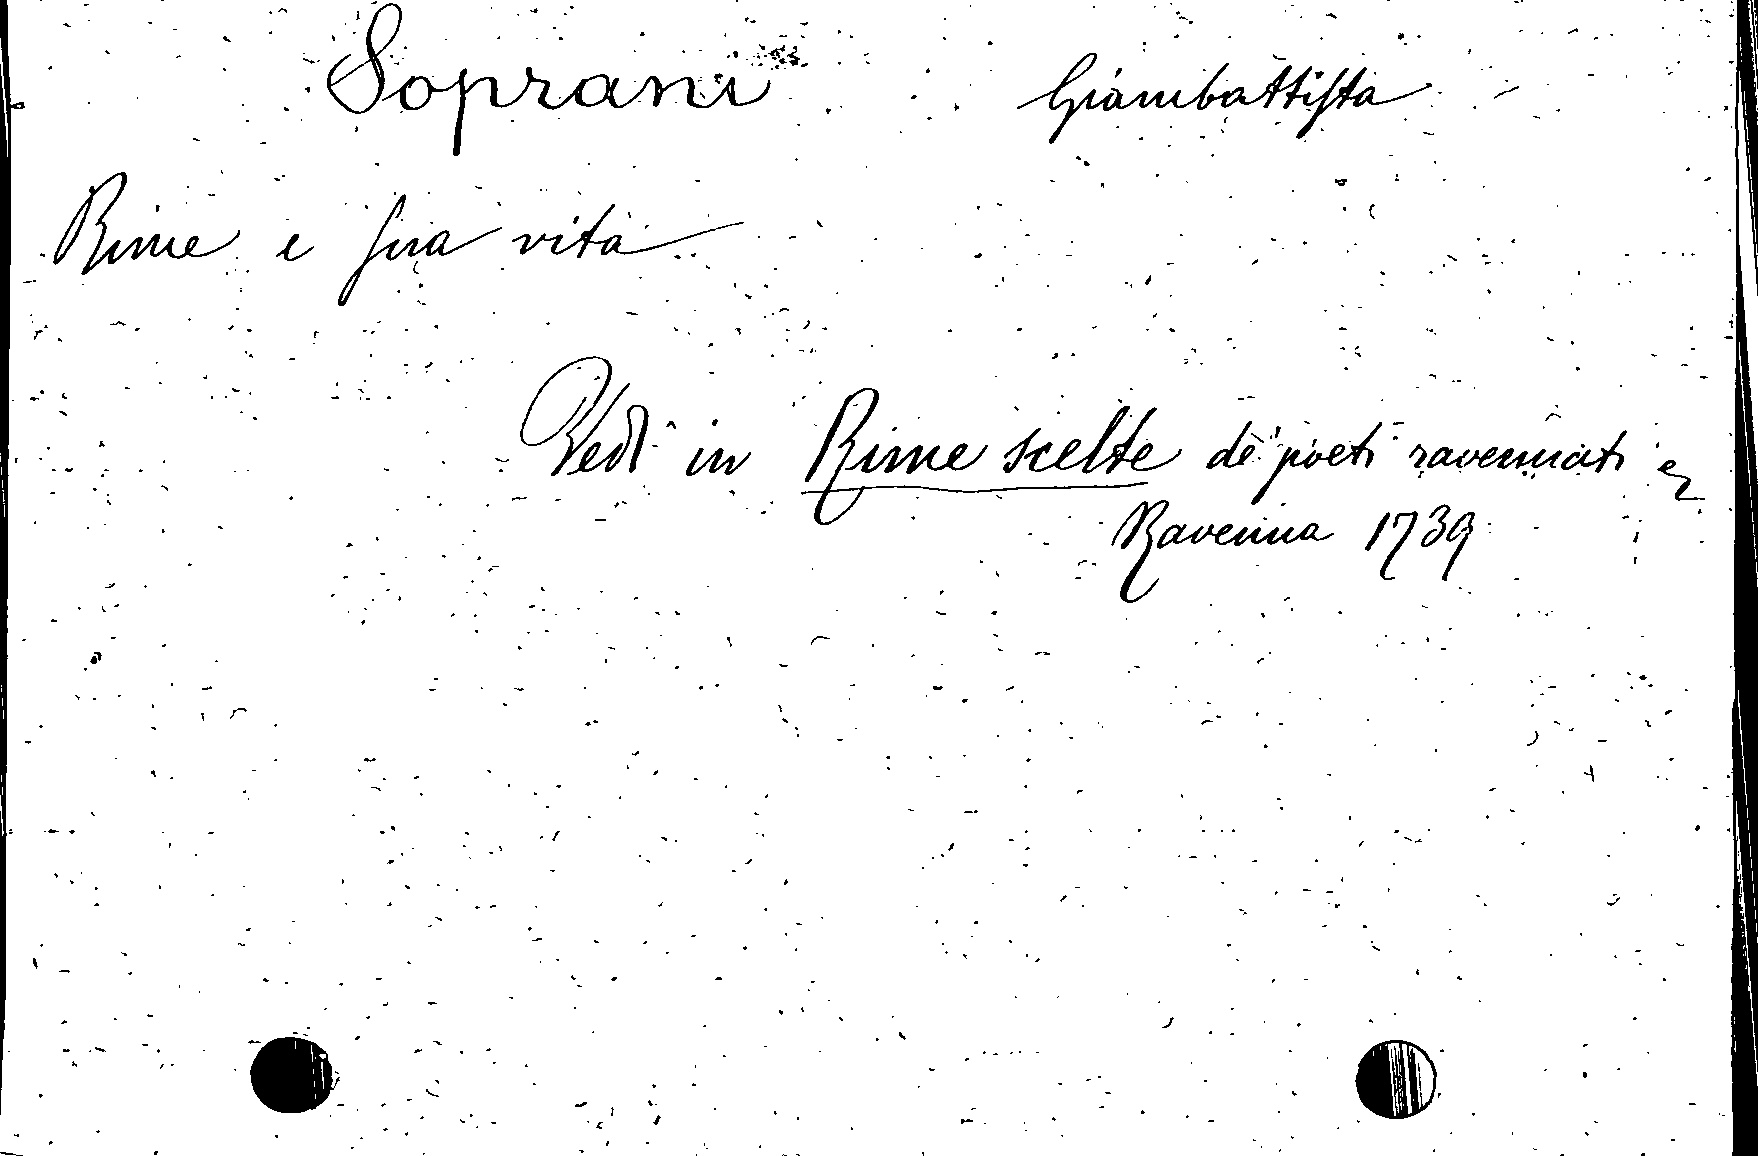 Soprani Giambattista
Rime e sua vita
Vedi in Rime scelte de' poeti ravennati
Ravenna 1739